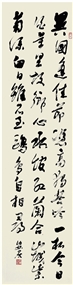 異國逢佳節憑高獨苦吟一杯今日
醉萬里故鄉心水館紅蘭合山城紫
菊深白衣雖不至鷗鳥自相尋